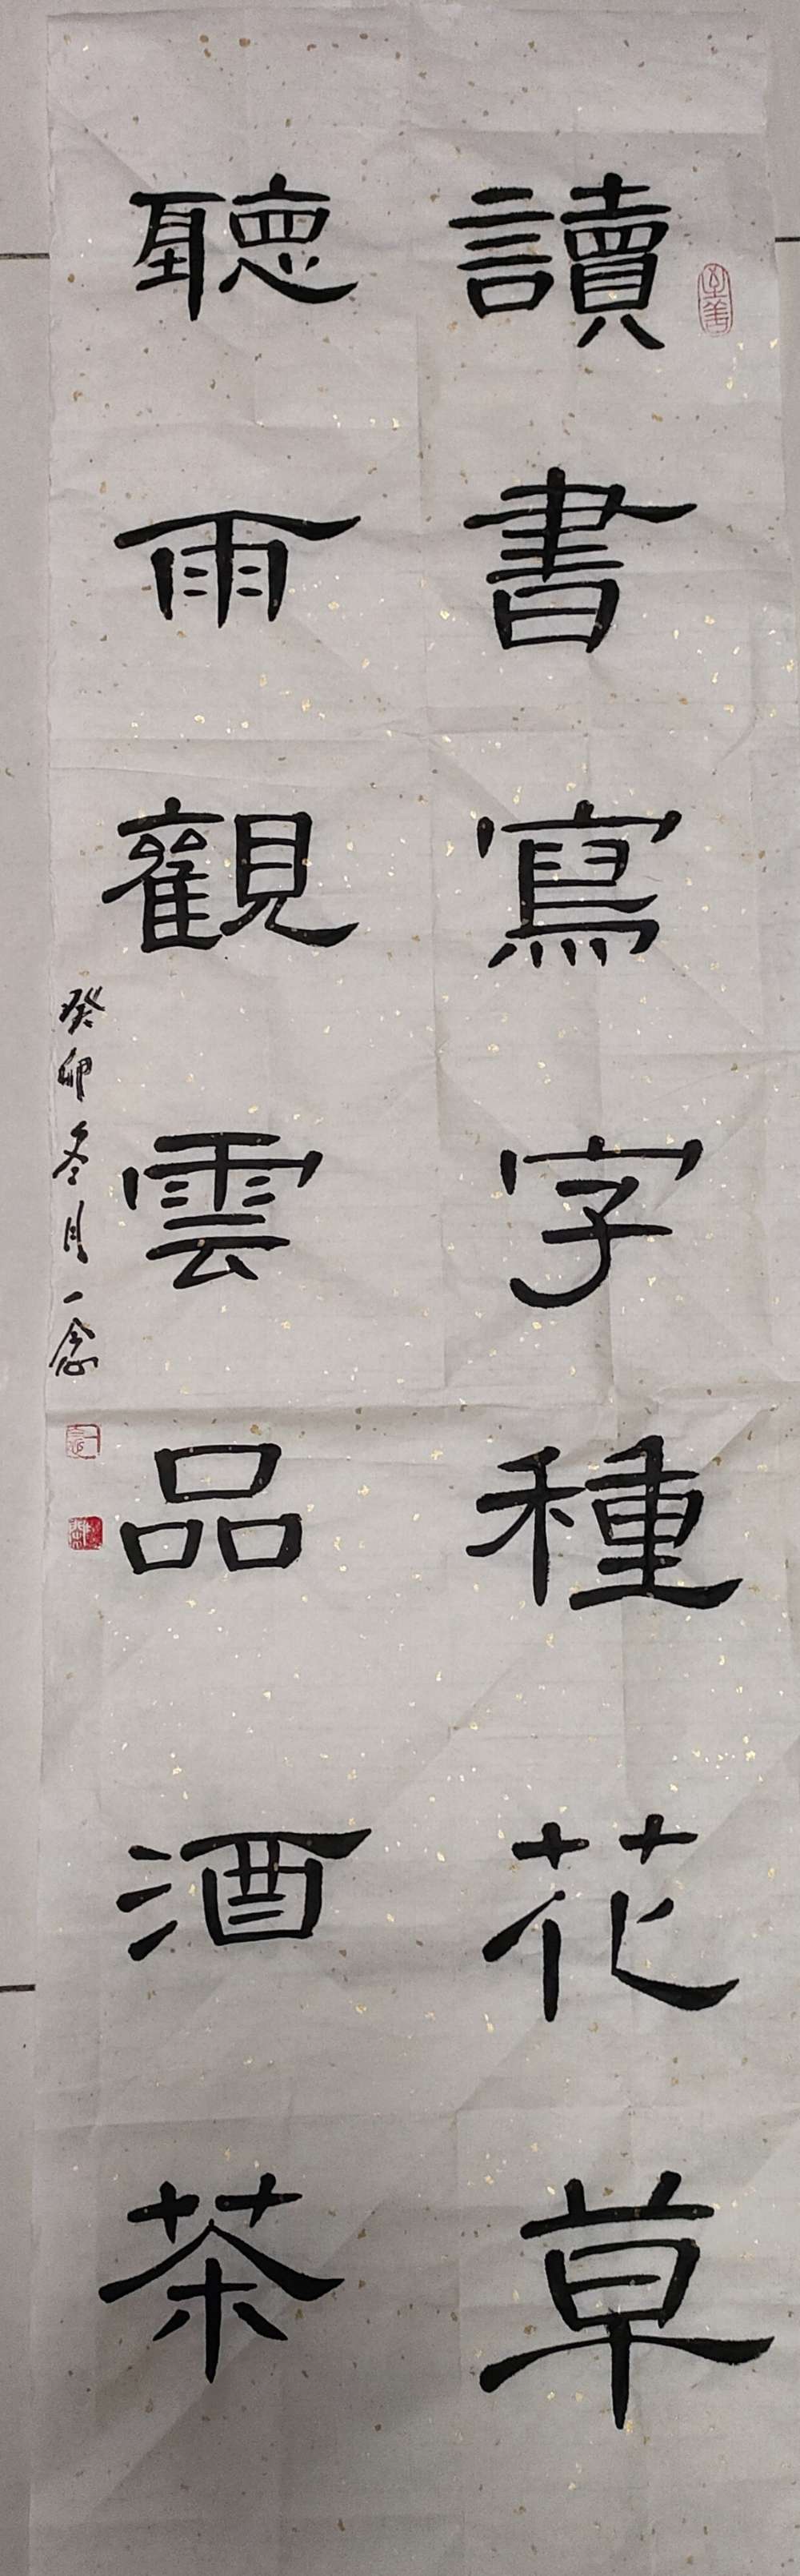 讀書寫字種花草
聽雨觀雲品酒茶
癸卯冬月一念